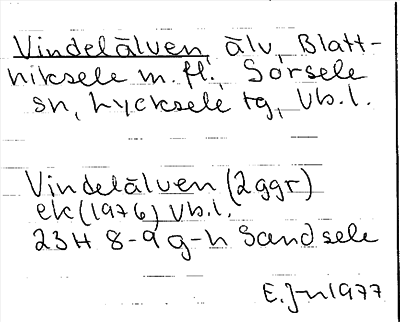 Vindelälven, älv, Blatt-
niksele m. fl., Sorsele
sn, Lycksele tg, Vb. l.
Vindelälven (2 ggr)
ek (1976) Vb. l.
23H 8-9 g-h Sandsele
E. Jn 1977